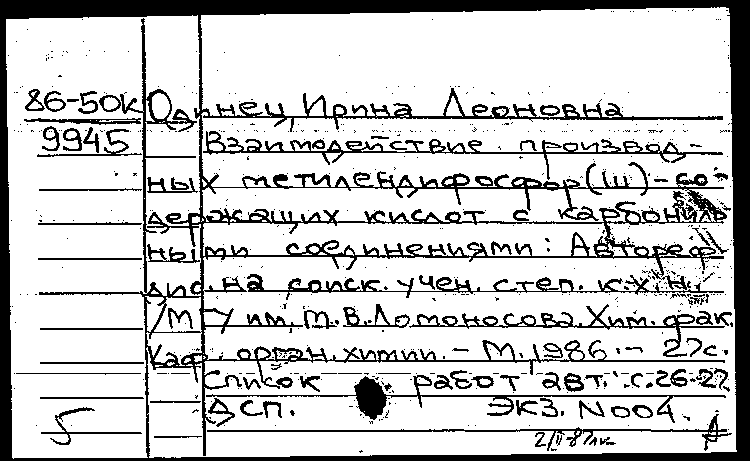 86-50к Одинец, Ирина Леоновна
9945 Взаимодействие производ-
ных метилендифосфор(III)-со-
держащих кислот с карбониль-
ными соединениями: Автореф.
дис. на соиск. учен. степ. к.х.н.
/МГУ им. М.В.Ломоносова. Хим. фак.
Каф. орган. химии. - М. 1986. - 27с.
Список работ авт.: с.26-27
5 ДСП. ЭКЗ. N004.
А